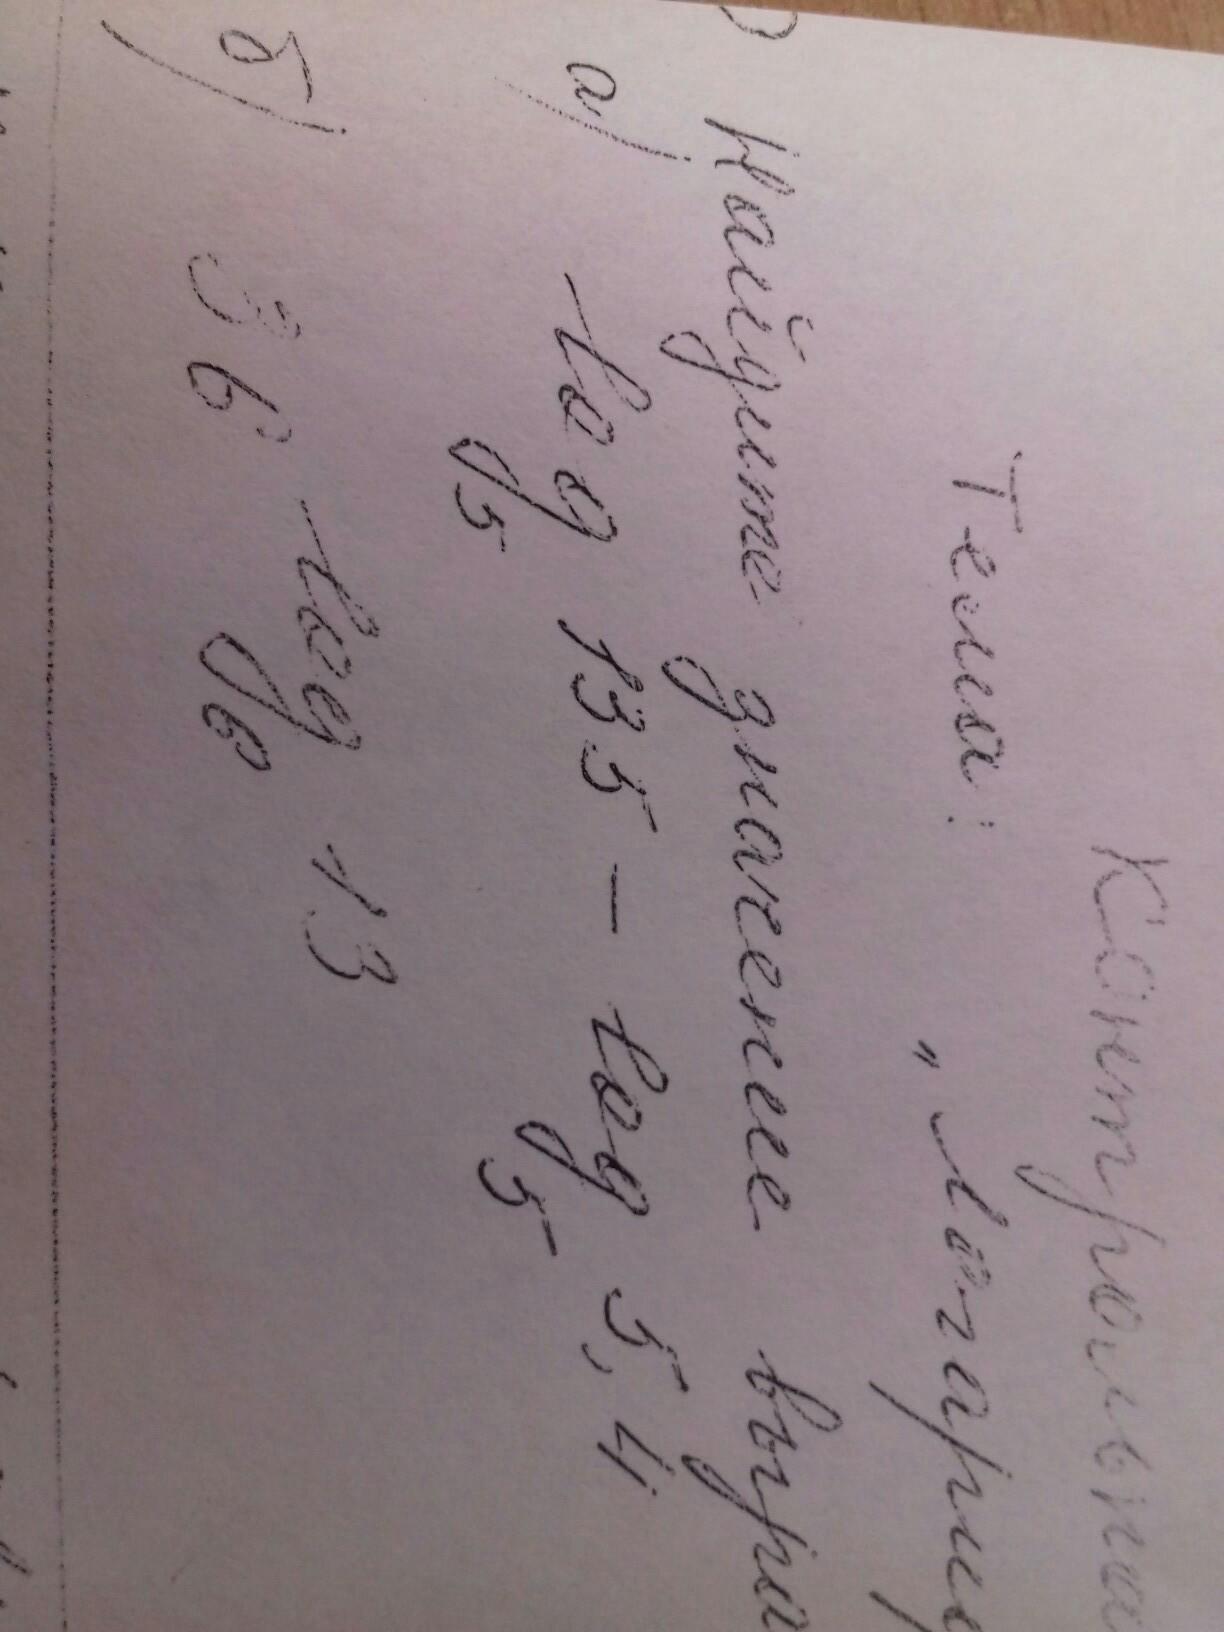 Контрольна
Тема: „Логариф
Найдите значение выра
а) log₅ 135 – log₅ 5,4
б) 36 log₆ 13